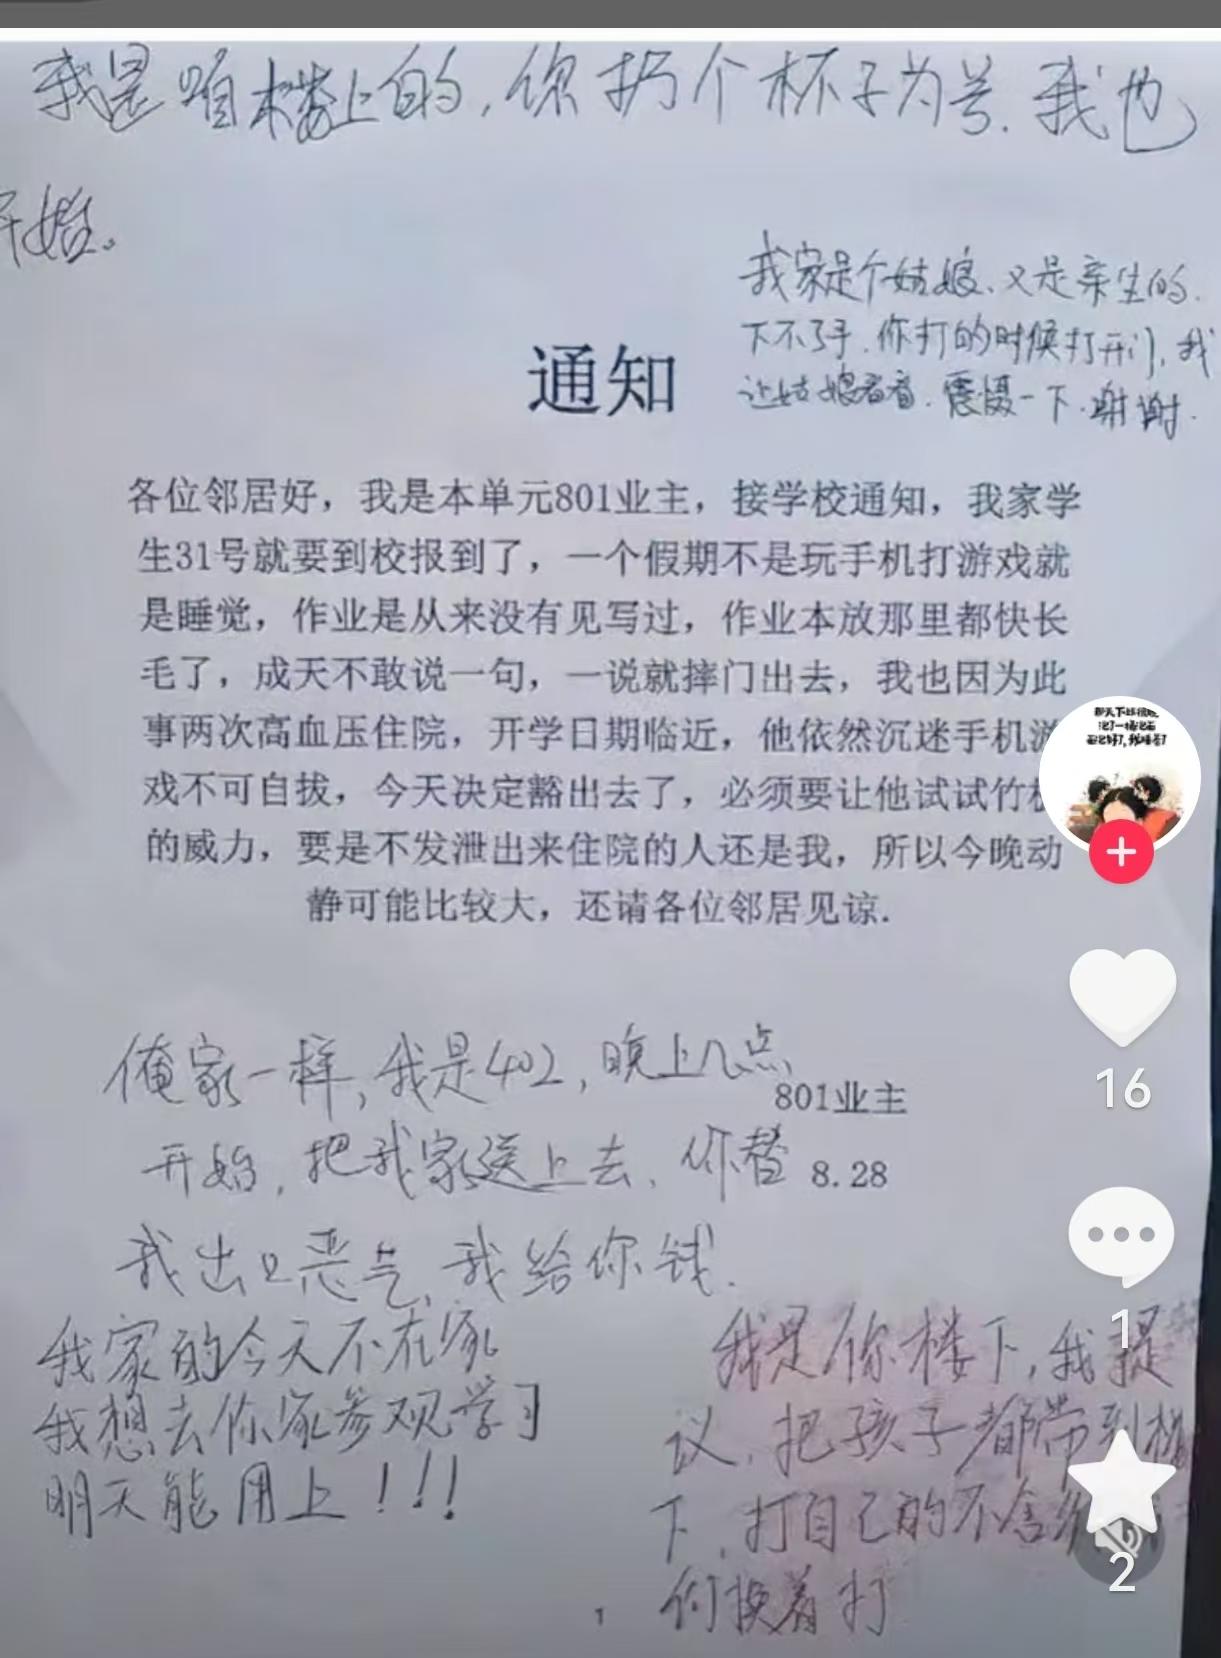 我是咱楼上的，你扔个杯子为号．我也
开始。
我家是个姑娘、又是亲生的．
下不了手．你打的时候打开门，我
让姑娘看看．震慑一下．谢谢．
通知
各位邻居好，我是本单元801业主，接学校通知，我家学
生31号就要到校报到了，一个假期不是玩手机打游戏就
是睡觉，作业是从来没有见写过，作业本放那里都快长
毛了，成天不敢说一句，一说就摔门出去，我也因为此
事两次高血压住院，开学日期临近，他依然沉迷手机游
戏不可自拔，今天决定豁出去了，必须要让他试试竹
的威力，要是不发泄出来住院的人还是我，所以今晚动
静可能比较大，还请各位邻居见谅.
俺家一样，我是402，晚上几点
801业主
开始，把我家送上去．你替
8.28
我出口恶气，我给你钱．
我家的今天不在家
我想去你家参观学习
明天能用上！！！
我是你楼下，我提
议，把孩子都带到楼
下，打自己的不舍
们换着打
1
16
1
2